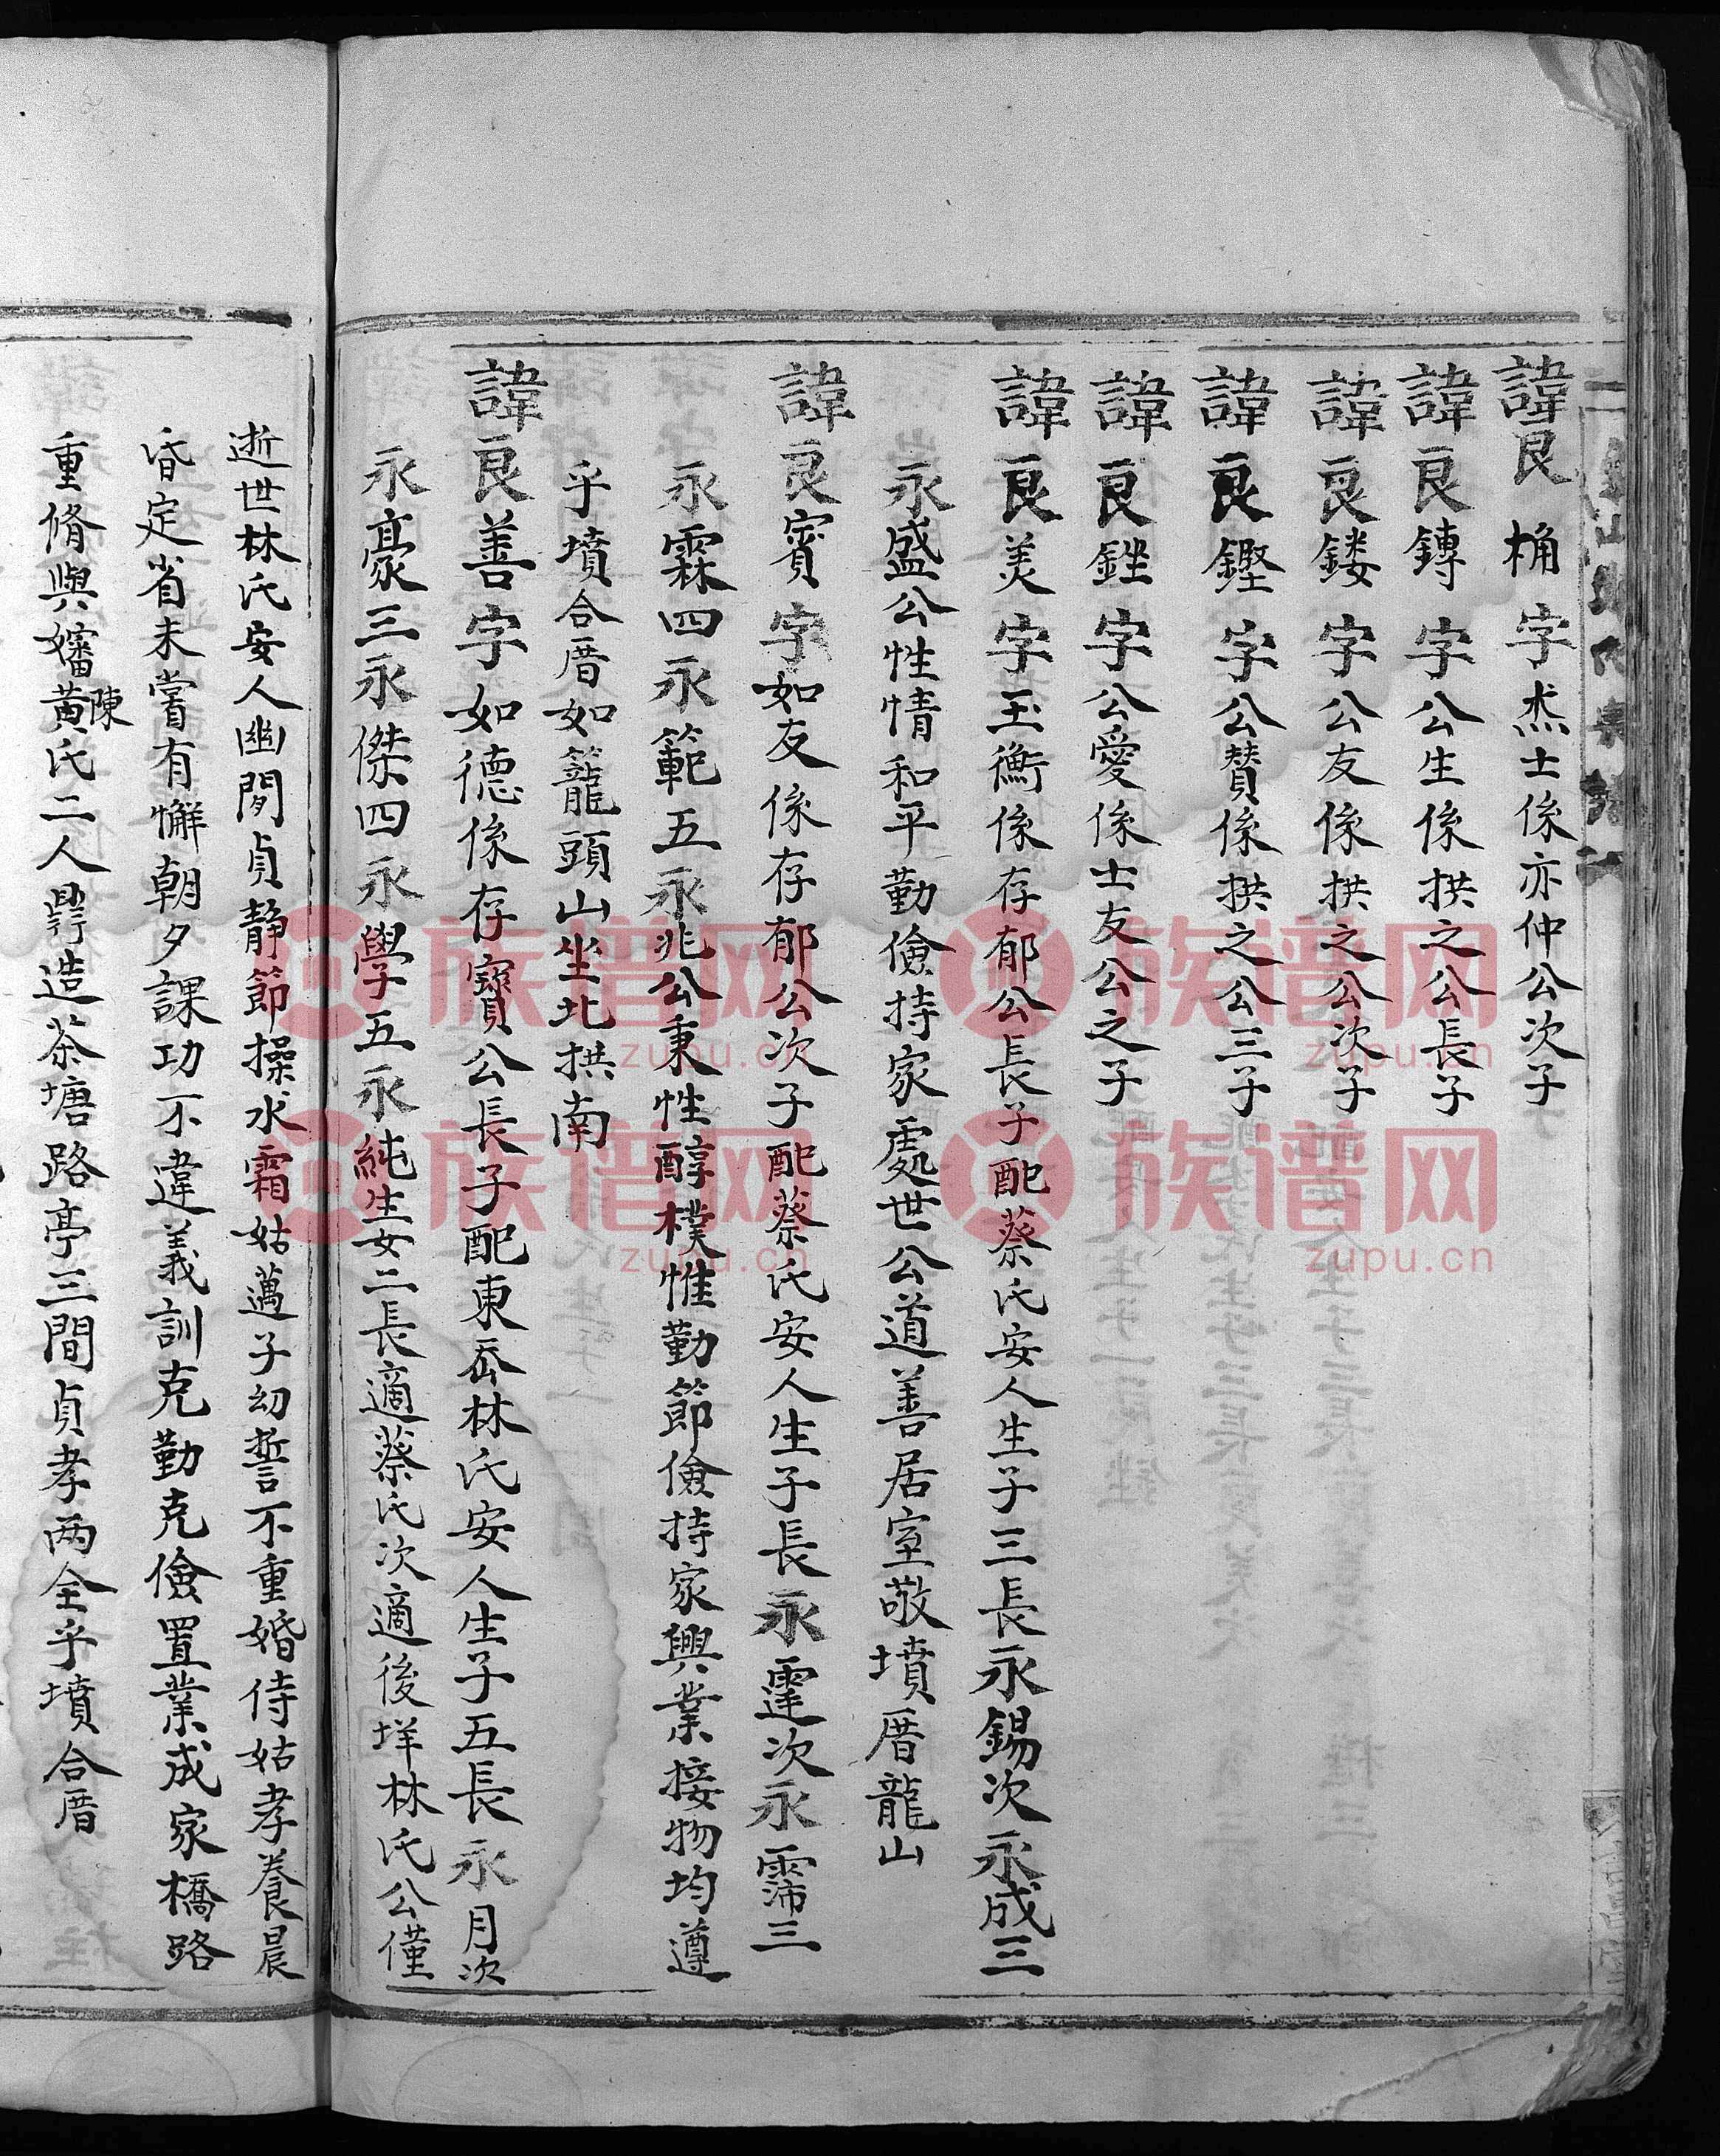 諱良桷字焘士係亦仲公次子
諱良鏄字公生係拱之公長子
諱良鏤字公友係拱之公次子
諱良鏗字公贊係拱之公三子
諱良銼字公愛係士友公之子
諱良美字玉衡係存郁公長子配蔡氏安人生子三長永錫次永成三
永盛公性情和平勤儉持家處世公道善居室敬墳厝龍山
諱良賓字如友係存郁公次子配蔡氏安人生子長永霆次永霈三
永霖四永範五永兆公秉性醇樸惟勤節儉持家興業接物均遵
乎墳合厝如籠頭山坐北拱南
諱良善字如德係存寶公長子配東岙林氏安人生子五長永月次
永豪三永傑四永學五永純生女二長適蔡氏次適後垟林氏公僅
逝世林氏安人幽閒貞静節操氷霜姑邁子幼誓不重婚侍姑孝養晨
昏定省未嘗有懈朝夕課功不違義訓克勤克儉置業成家橋路
重脩與嬸陳黃氏二人鼎造茶塘路亭三間貞孝两全乎墳合厝
族谱网
zupu.cn
族谱网
zupu.cn
族谱网
zupu.cn
族谱网
zupu.cn